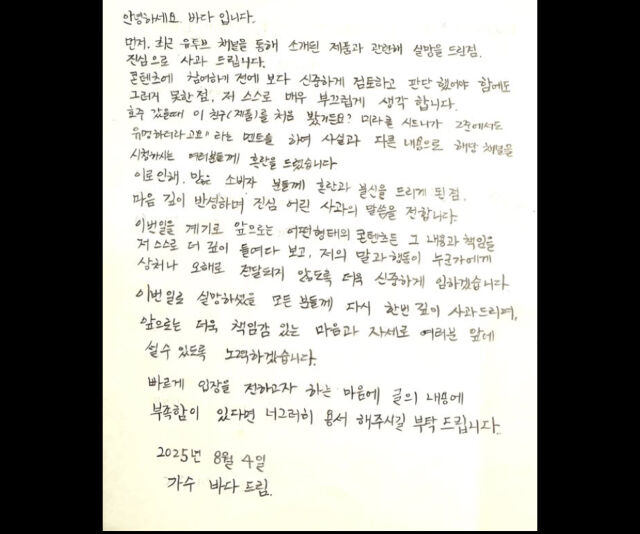 안녕하세요. 바다 입니다.
먼저, 최근 유투브 채널을 통해 소개된 제품과 관련해 실망을 드린점.
진심으로 사과 드립니다.
콘텐츠에 참여하기 전에 보다 신중하게 검토하고 판단 했어야 함에도
그러지 못한 점, 저 스스로 매우 부끄럽게 생각 합니다.
호주 갔을때 이 친구(제품)를 처음 봤거든요? 미라클 시드니가 호주에서도
유명하더라고요" 라는 멘트를 하여 사실과 다른 내용으로 해당 채널을
시청하시는 여러분들께 혼란을 드렸습니다
이로 인해, 많은 소비자 분들께 혼란과 불신을 드리게 된 점.
마음 깊이 반성하며 진심 어린 사과의 말씀을 전합니다.
이번일을 계기로 앞으로는 어떤형태의 콘텐츠든 그 내용과 책임을
저 스스로 더 깊이 들여다 보고, 저의 말과 행동이 누군가에게
상처나 오해로 전달되지 않도록 더욱 신중하게 임하겠습니다
이번 일로 실망하셨을 모든 분들께 다시 한번 깊이 사과드리며,
앞으로는 더욱 책임감 있는 마음과 자세로 여러분 앞에
설 수 있도록 노력하겠습니다.
바르게 입장을 전하고자 하는 마음에 글의 내용에
부족함이 있다면 너그러히 용서 해주시길 부탁 드립니다.
2025년 8월 4일
가수 바다 드림.